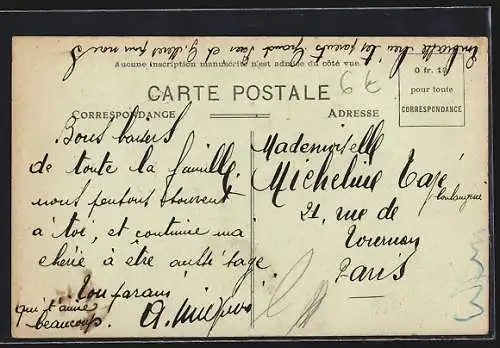 Embrasse bien tes parents Grand Père et
Aucune inscription manuscrite n'est admise du côté vue.
6 €
CARTE POSTALE
0 fr. 15
pour toute
CORRESPONDANCE
CORRESPONDANCE
ADRESSE
Bons baisers
de toute la famille.
nous pensons souvent
à toi, et continue ma
chérie à être aussi sage
Ton parain
qui t'aime
beaucoup.
Mademoiselle
Micheline
boulangerie
21, rue de
Tournon
Paris